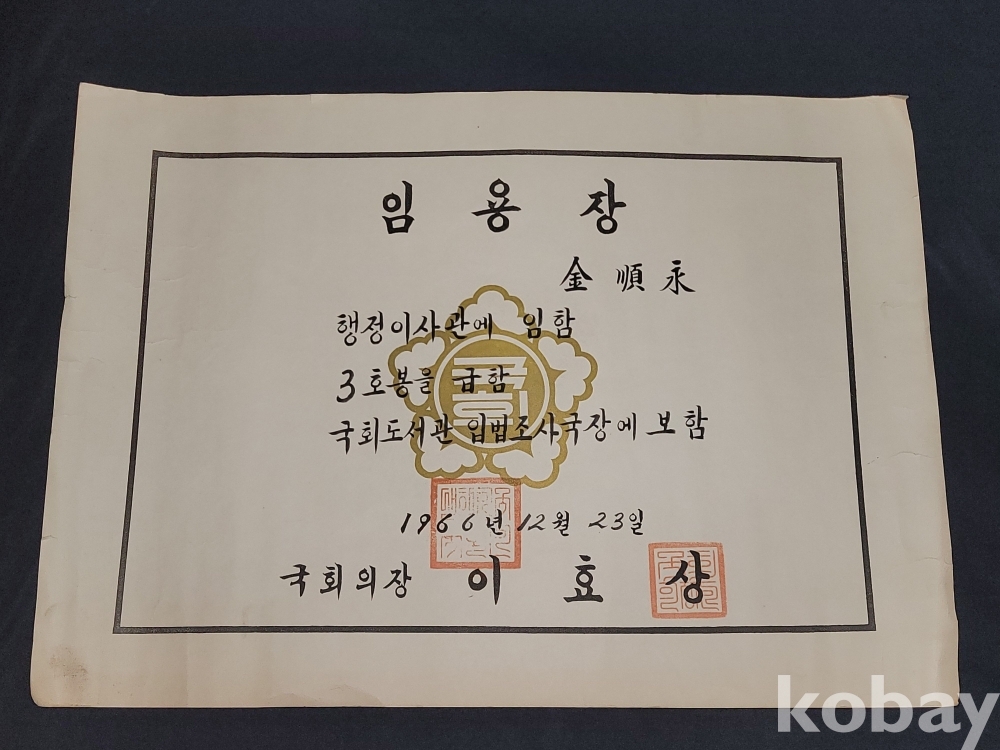 임용장
金順永
행정이사관에 임함
3호봉을 급함
국회도서관 입법조사국장에 보함
1966년 12월 23일
국회의장 이효상
kobay